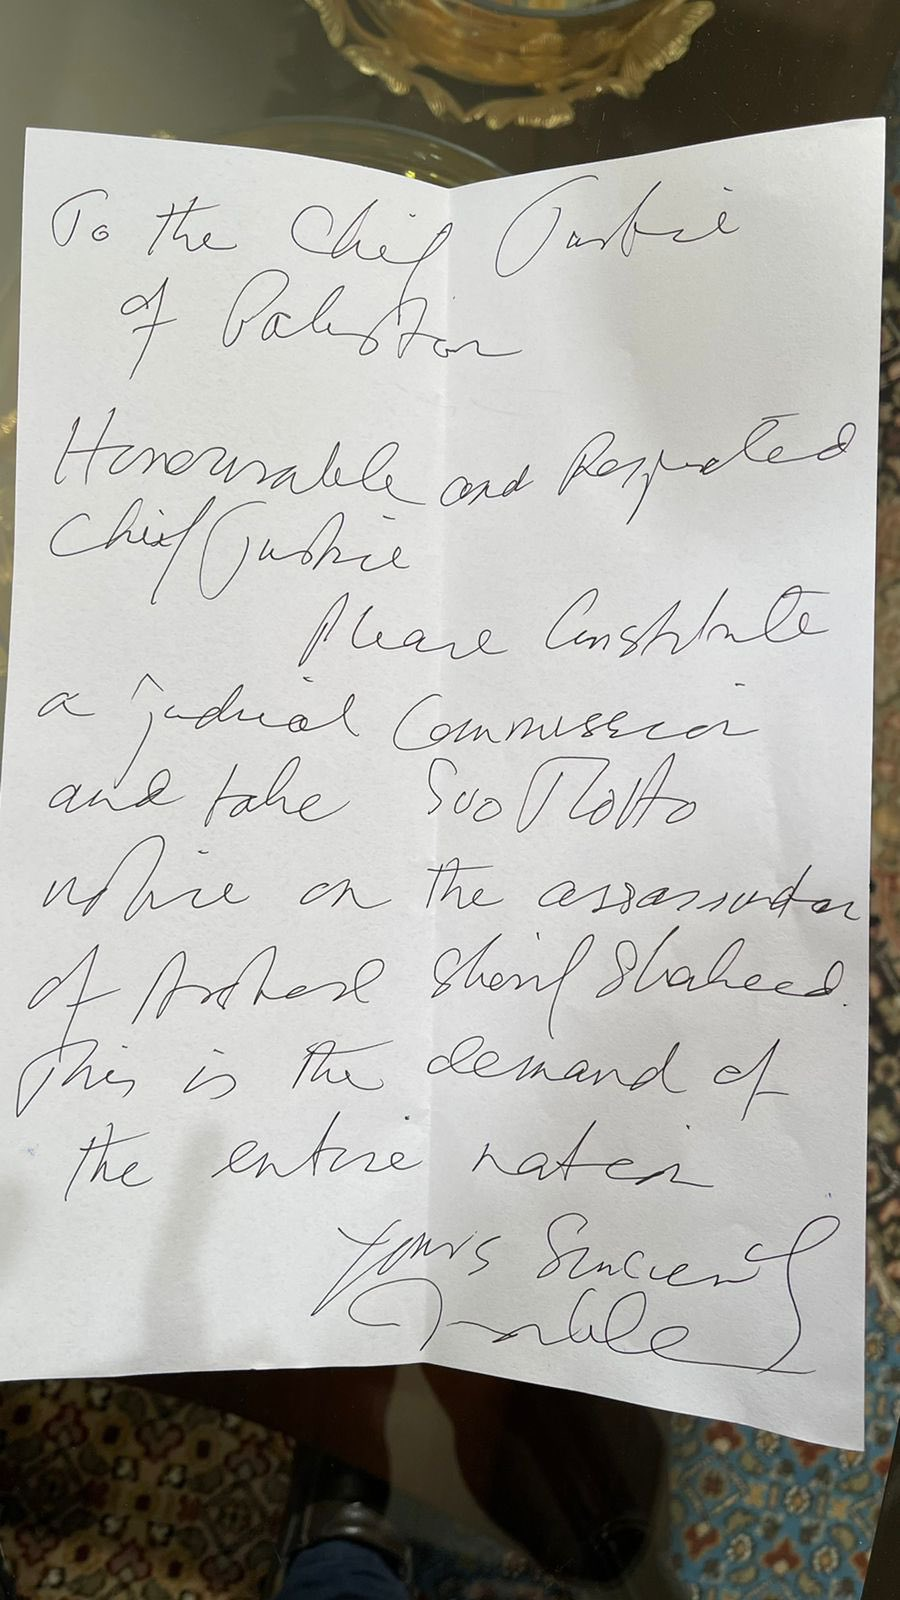 To the Chief Justice
of Pakistan
Honourable and Respected
Chief Justice
Please Constitute
a judicial Commission
and take Suo Motto
notice on the assassination
of Arshad Sharif Shaheed.
This is the demand of
the entire nation
Yours Sincerely